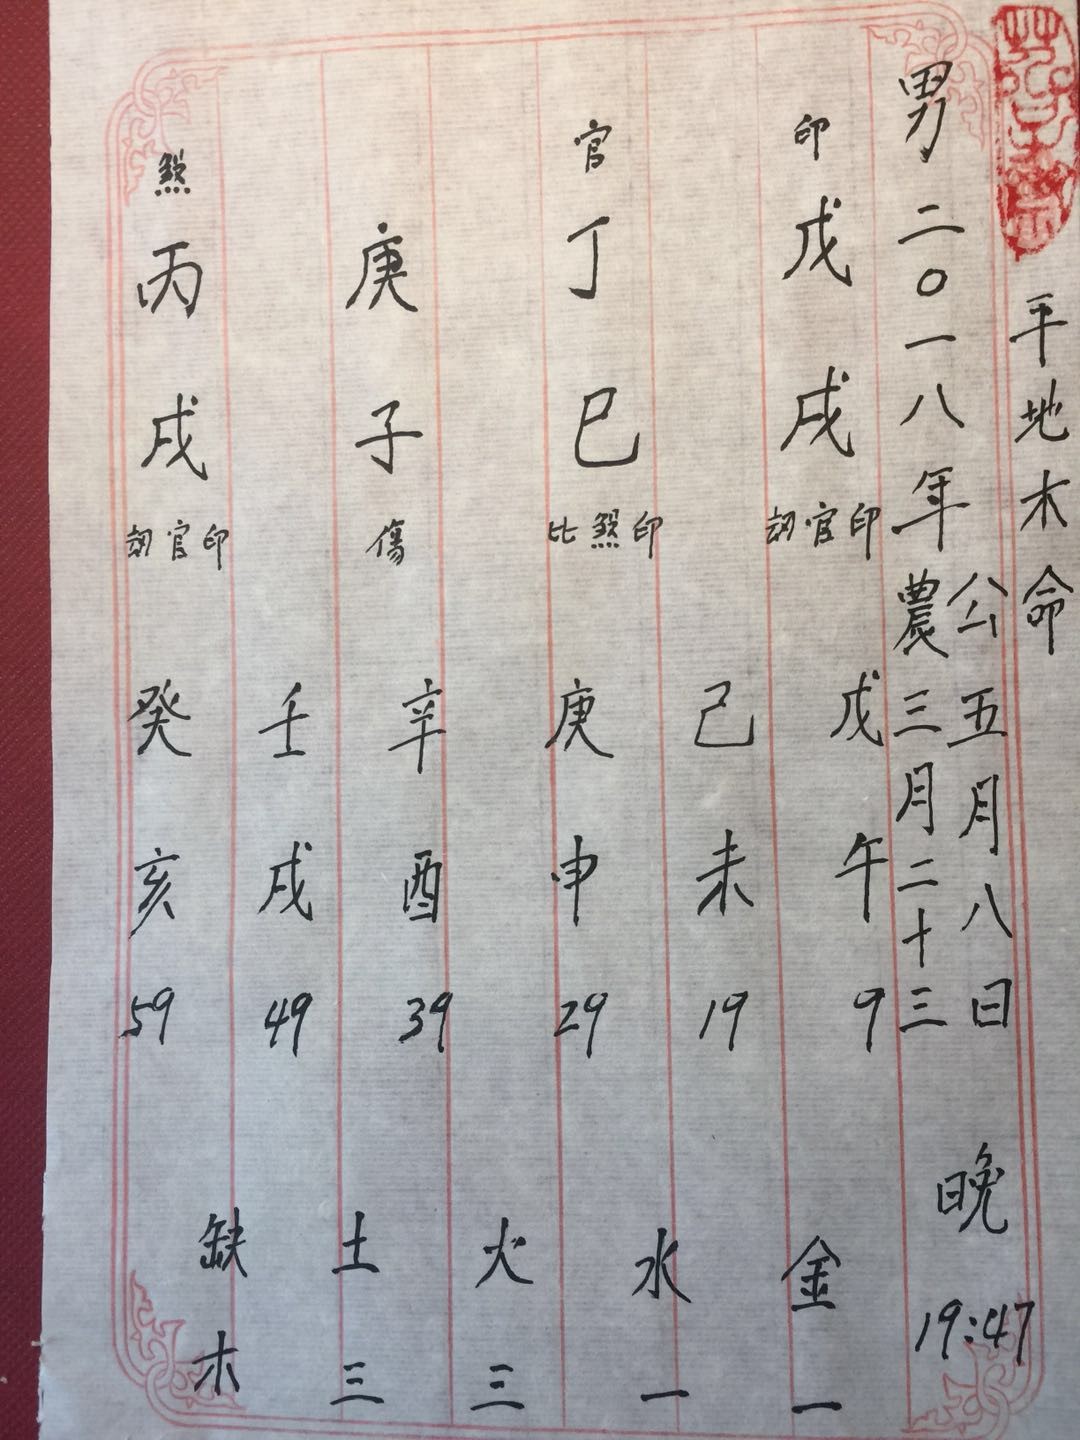 平地木命
男二〇一八年
公五月八日
農三月二十三
晚
19:47
印
戊戌
劫官印
官
丁巳
比煞印
庚子
傷
煞
丙戌
劫官印
戊午
9
己未
19
庚申
29
辛酉
39
壬戌
49
癸亥
59
金一
水一
火三
土三
缺木